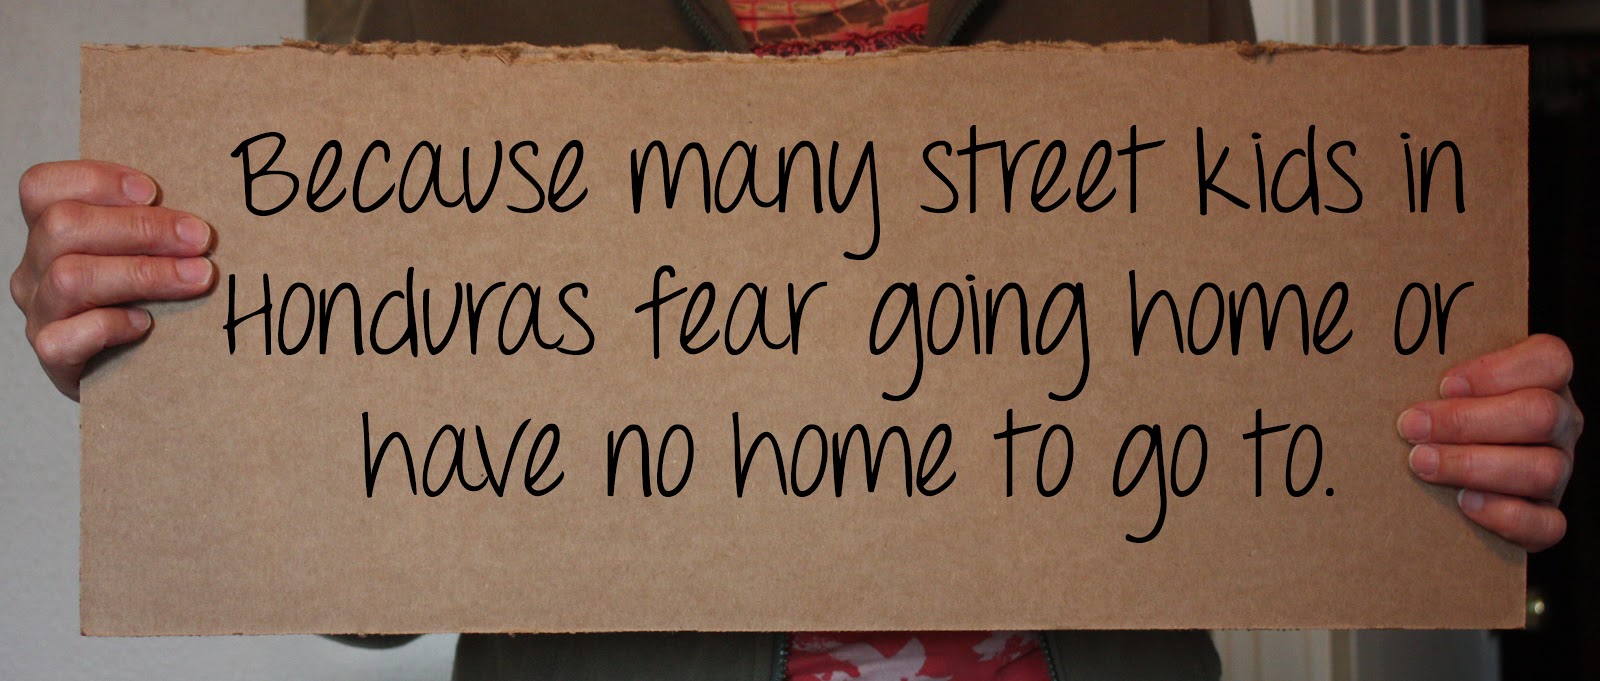 Because many street kids in
Honduras fear going home or
have no home to go to.